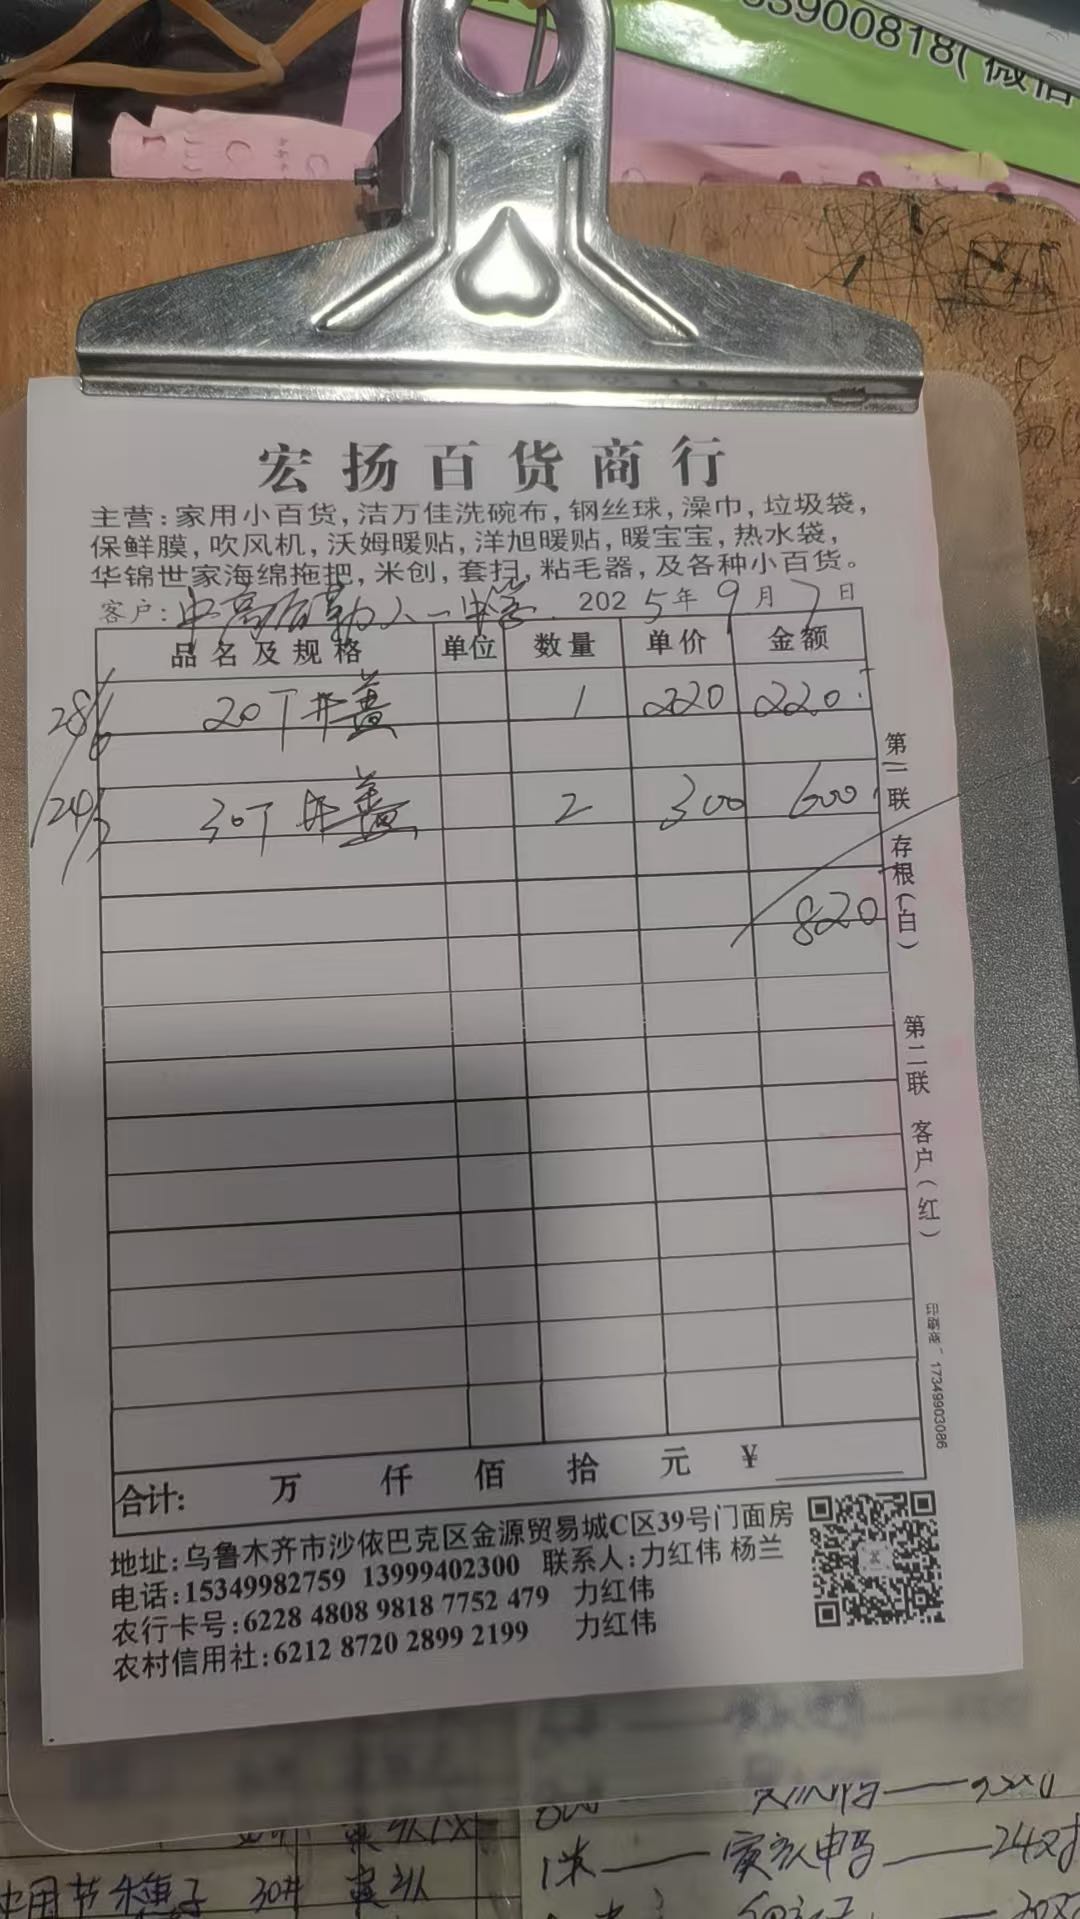 3900818(微信
宏扬百货商行
主营:家用小百货,洁万佳洗碗布,钢丝球,澡巾,垃圾袋,
保鲜膜,吹风机,沃姆暖贴,洋旭暖贴,暖宝宝,热水袋,
华锦世家海绵拖把,米创,套扫,粘毛器,及各种小百货。
客户:中高后勤 八一中学 2025年9月7日
品名及规格 单位 数量 单价 金额
28/6 20T井盖 1 220 220
24/7 30T井盖 2 300 600
820
第一联 存根(白)
第二联 客户(红)
印刷商 17349903086
合计: 万 仟 佰 拾 元 ¥
地址:乌鲁木齐市沙依巴克区金源贸易城C区39号门面房
电话:15349982759 13999402300 联系人:力红伟 杨兰
农行卡号:6228 4808 9818 7752 479 力红伟
农村信用社:6212 8720 2899 2199 力红伟
1米——寅亥申马——24双
30井